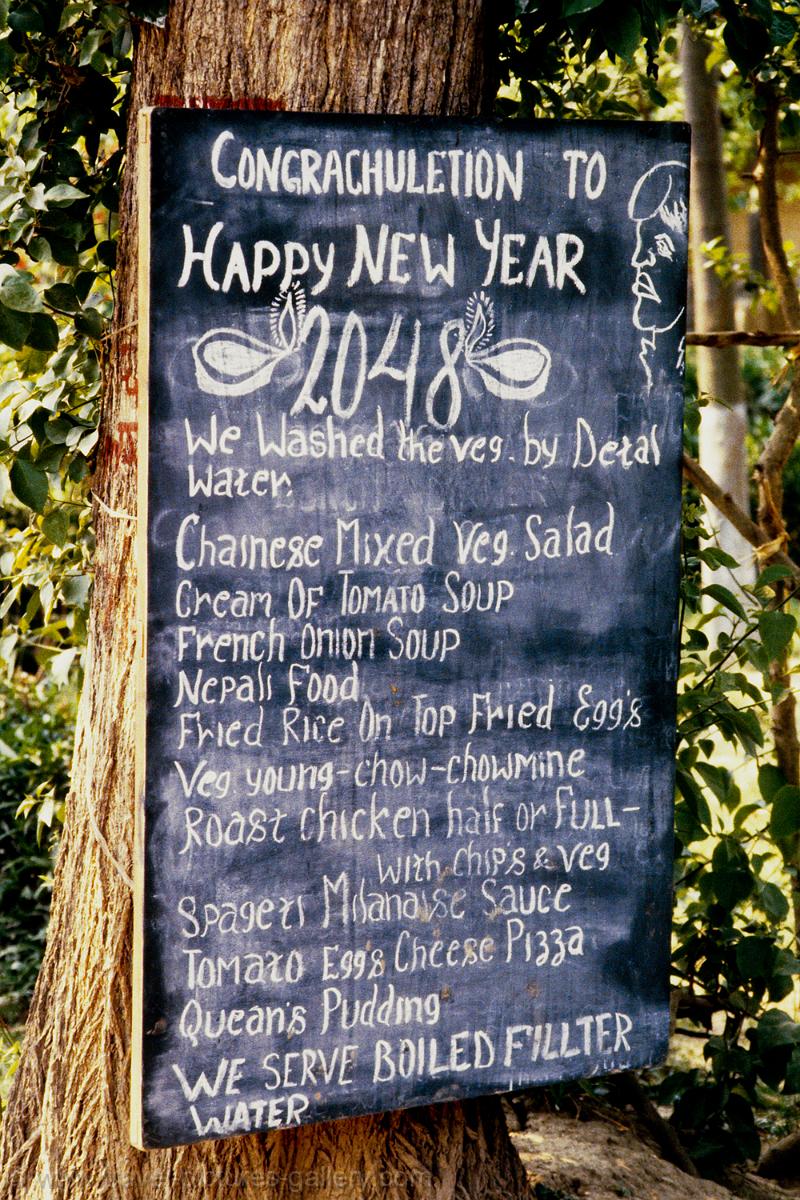 CONGRACHULETION TO
HAPPY NEW YEAR
2048
We Washed the veg. by Detal
Water.
Chainese Mixed Veg. Salad
Cream OF TOMATO SOUP
French Onion SOUP
Nepali Food
Fried Rice On Top Fried Egg's
Veg young-chow-chowmine
Roast chicken half or FULL-
with chip's & veg
Spageti Milanaise Sauce
Tomato Eggs Cheese Pizza
Quean's Pudding
WE SERVE BOILED FILLTER
WATER